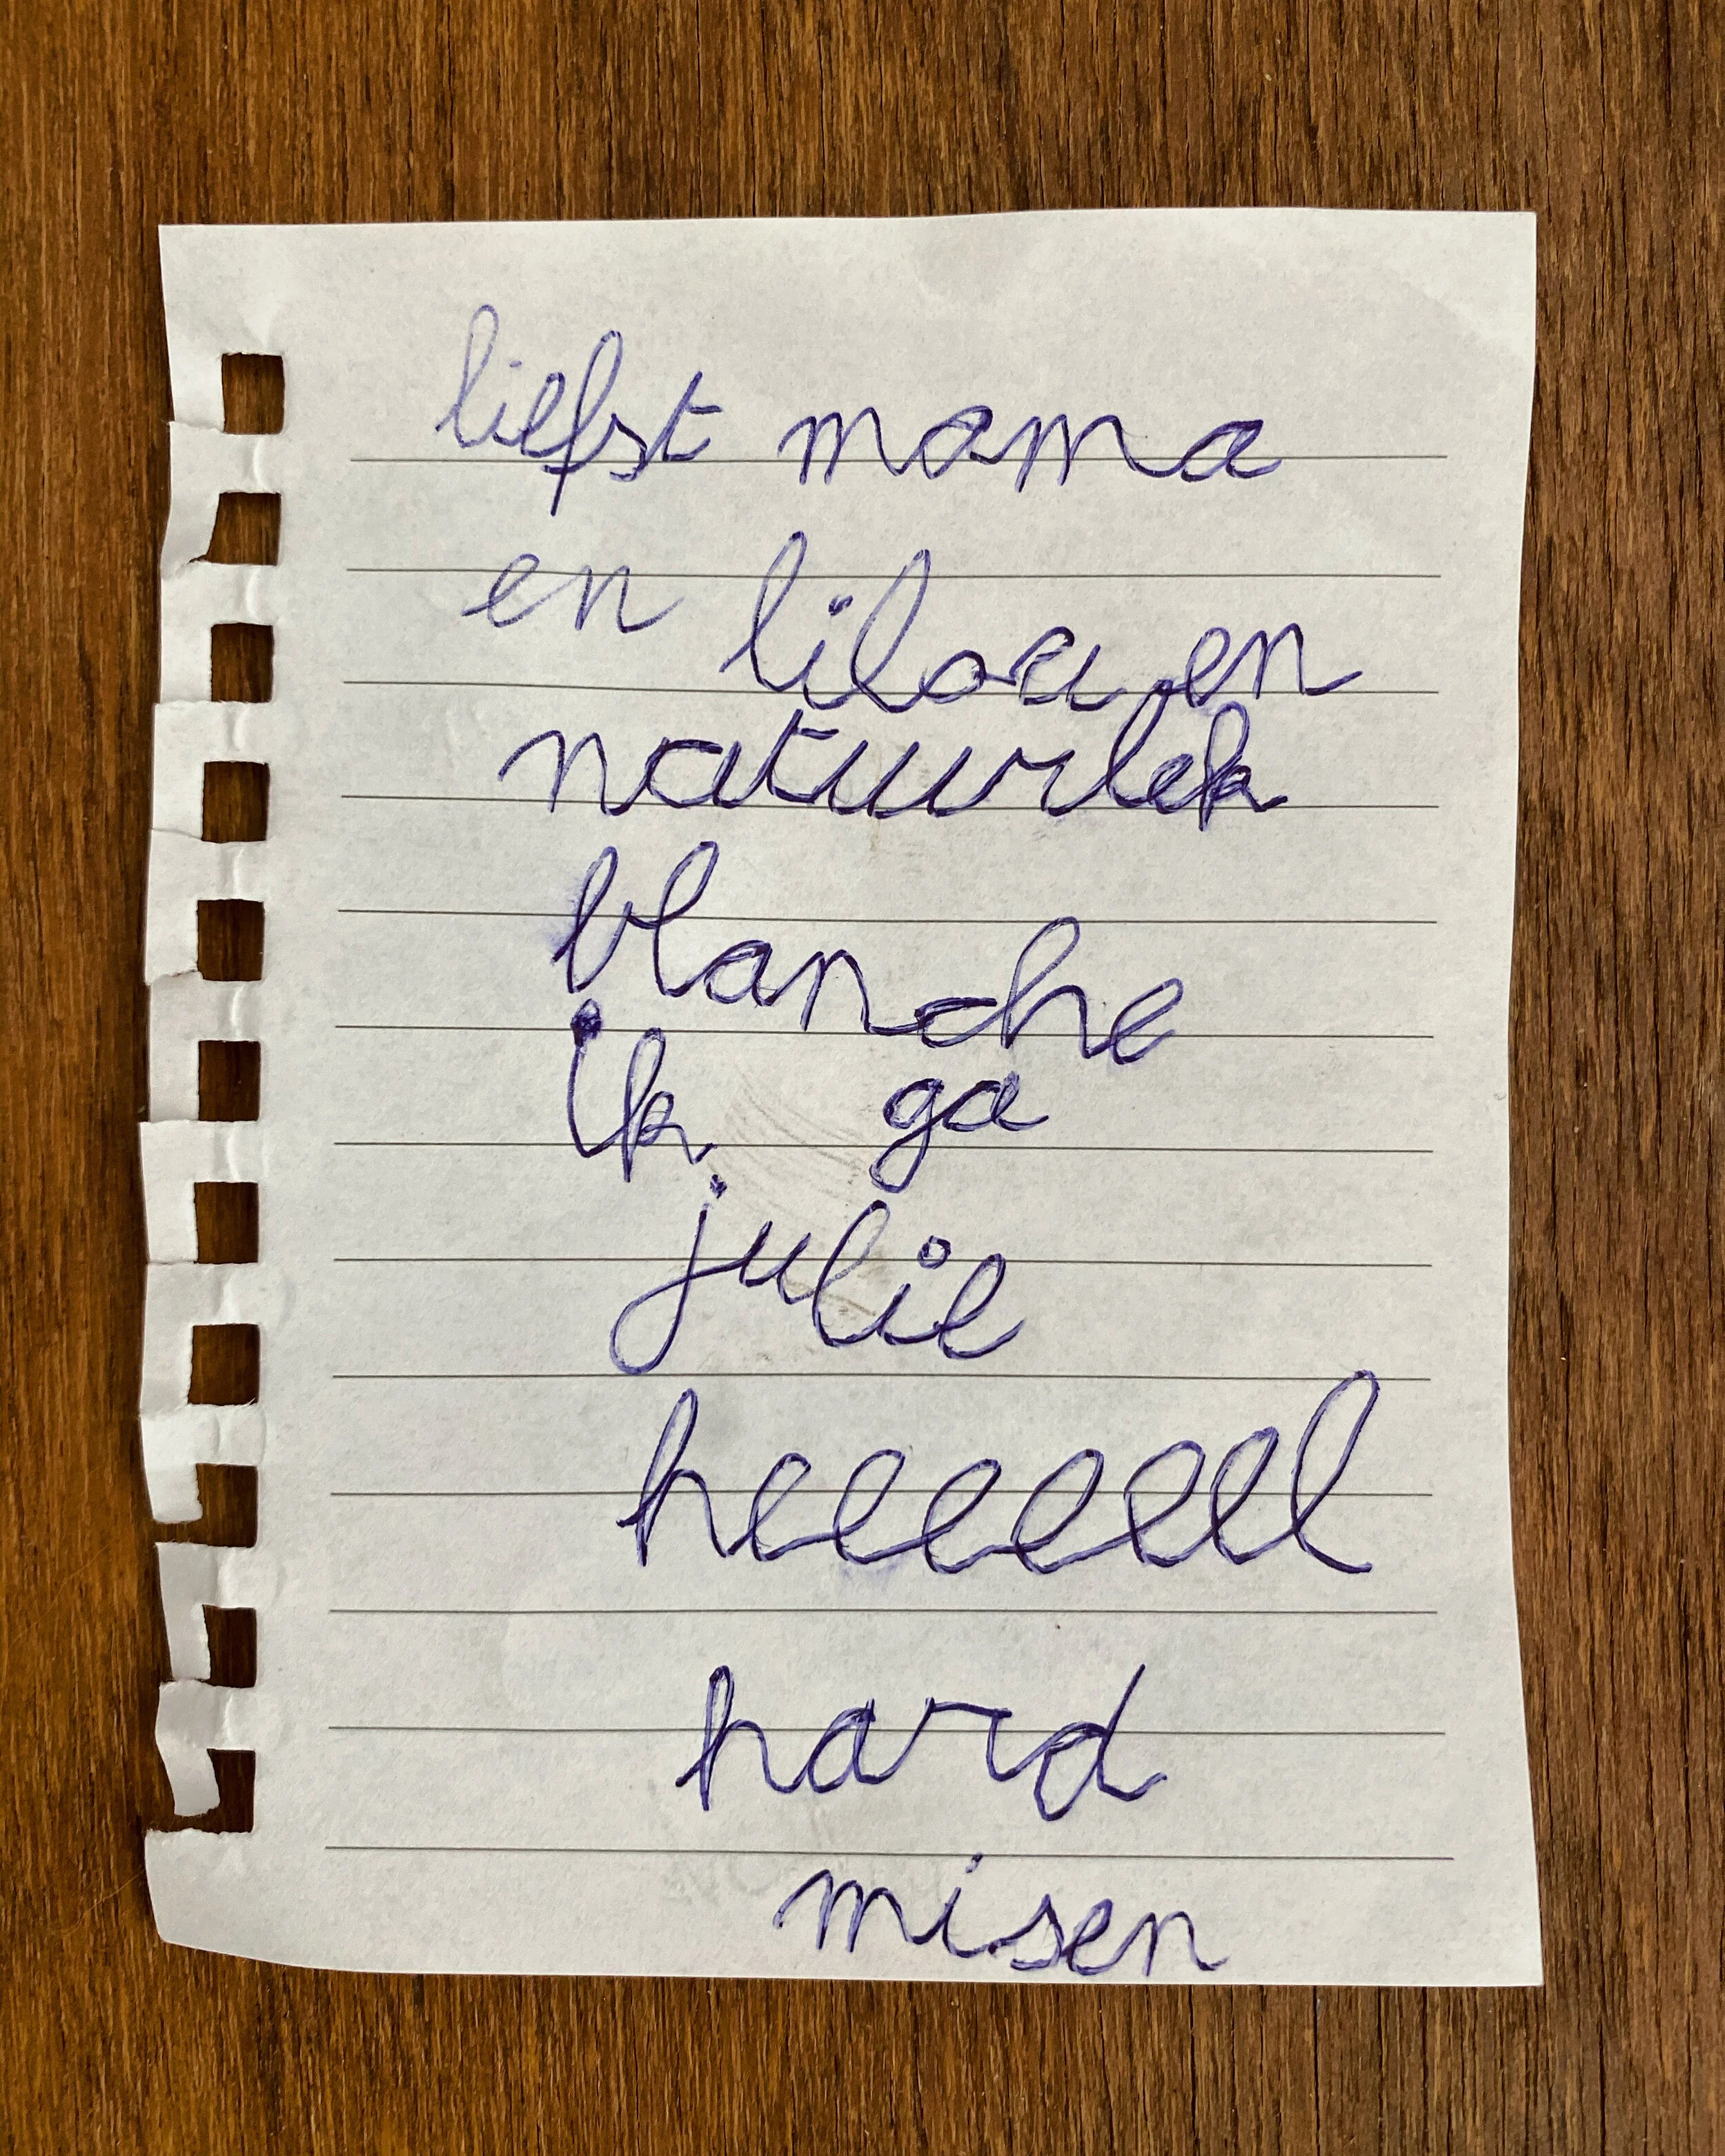 liefst mama
en liloa en
natuurlek
blanche
ik ga
julie
heeeeeel
hard
misen